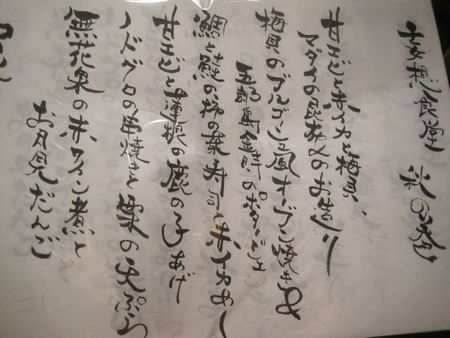 甘エビと赤イカと梅貝、
マダイの昆布〆のお造り
梅貝のブルゴーニュ風オーブン焼きと
五郎島金時のポタージュ
鯛と鮭の柿の葉寿司と赤イカめし
甘エビと蓮根の鹿の子あげ
ノドグロの串焼きと栗の天ぷら
無花果の赤ワイン煮と
お月見だんご